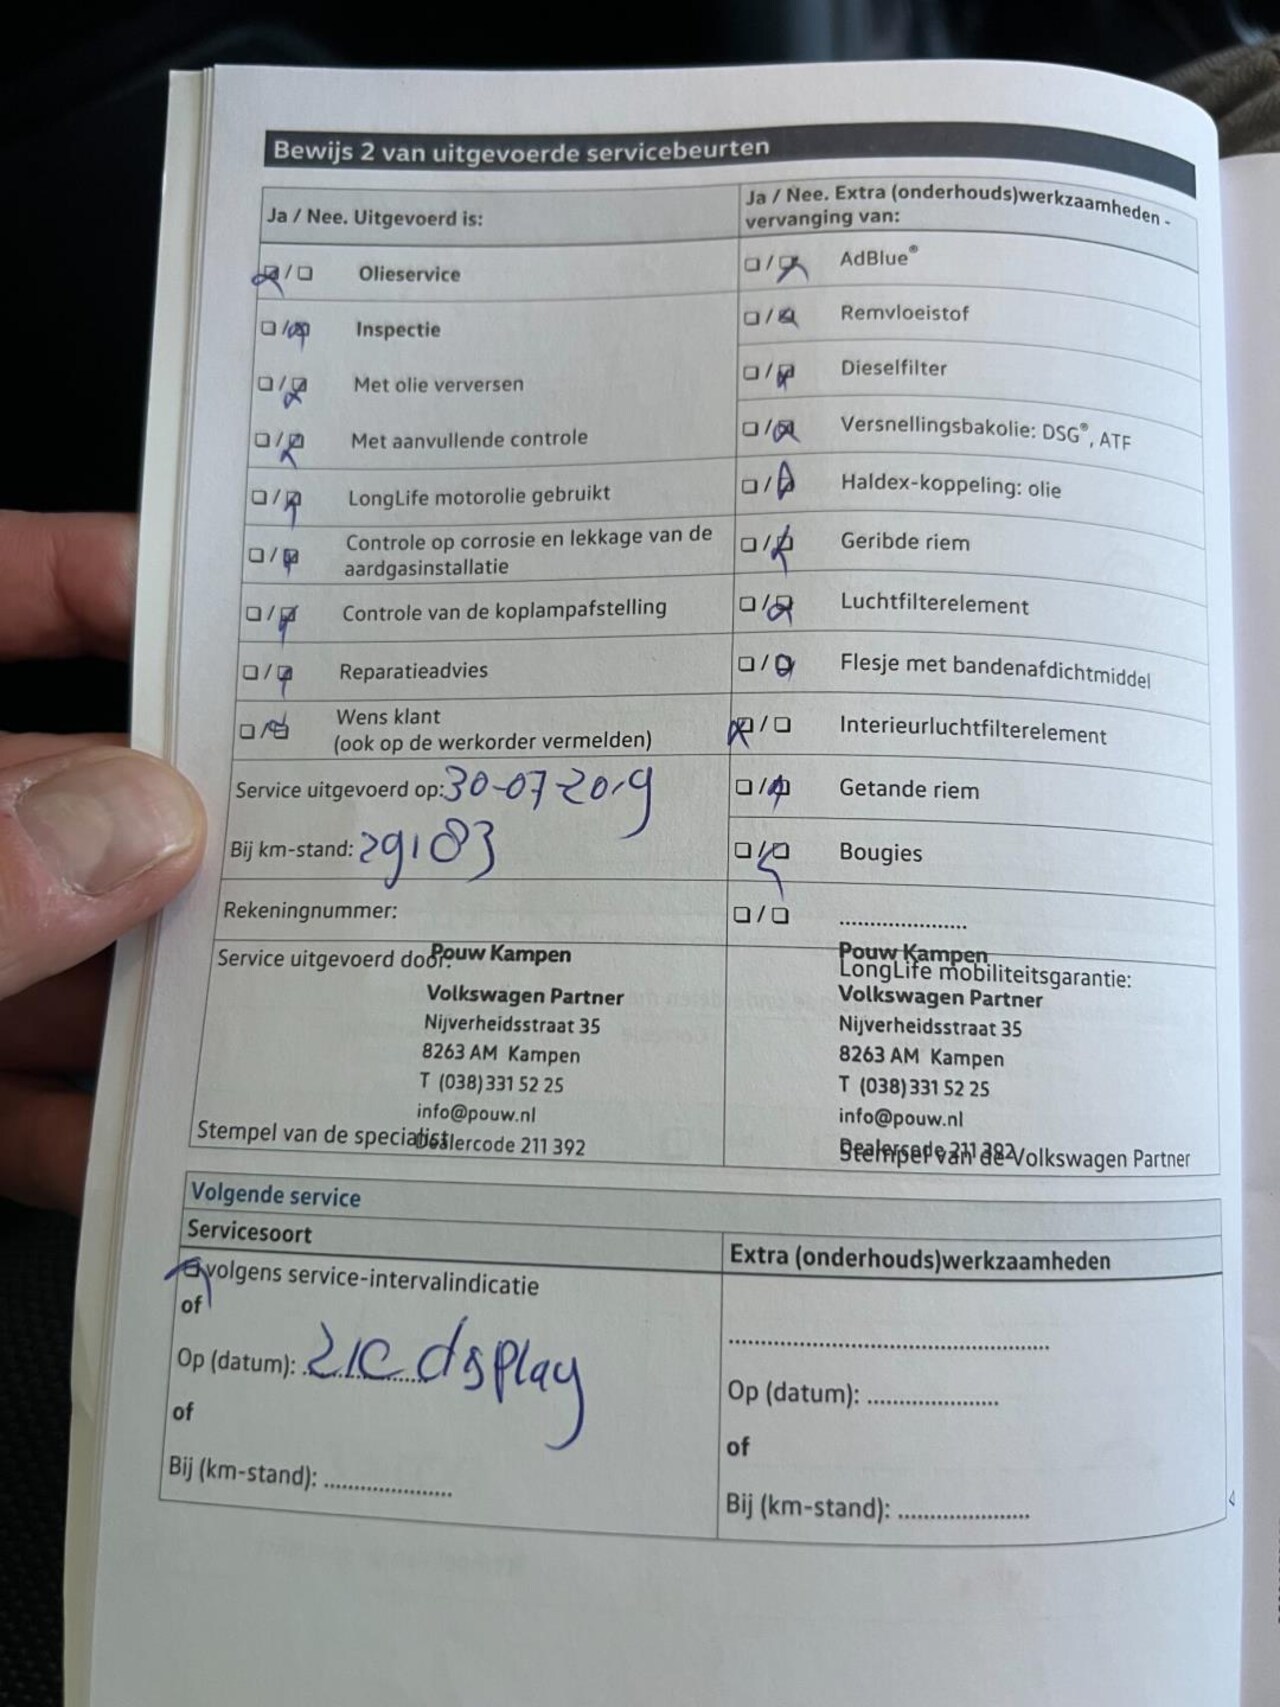 Bewijs 2 van uitgevoerde servicebeurten
Ja / Nee. Uitgevoerd is:
Olieservice
Inspectie
Met olie verversen
Met aanvullende controle
LongLife motorolie gebruikt
Controle op corrosie en lekkage van de
aardgasinstallatie
Controle van de koplampafstelling
Reparatieadvies
Wens klant
(ook op de werkorder vermelden)
Service uitgevoerd op: 30-07-2019
Bij km-stand: 29183
Rekeningnummer:
Service uitgevoerd door:
Pouw Kampen
Volkswagen Partner
Nijverheidsstraat 35
8263 AM Kampen
T (038) 331 52 25
info@pouw.nl
Dealercode 211 392
Stempel van de specialist
Ja / Nee. Extra (onderhouds)werkzaamheden -
vervanging van:
AdBlue®
Remvloeistof
Dieselfilter
Versnellingsbakolie: DSG®, ATF
Haldex-koppeling: olie
Geribde riem
Luchtfilterelement
Flesje met bandenafdichtmiddel
Interieurluchtfilterelement
Getande riem
Bougies
....................
Pouw Kampen
LongLife mobiliteitsgarantie:
Volkswagen Partner
Nijverheidsstraat 35
8263 AM Kampen
T (038) 331 52 25
info@pouw.nl
Dealercode 211 392
Stempel van de Volkswagen Partner
Volgende service
Servicesoort
volgens service-intervalindicatie
of
Op (datum): zie display
of
Bij (km-stand): ....................
Extra (onderhouds)werkzaamheden
..................................................
Op (datum): ....................
of
Bij (km-stand): ....................